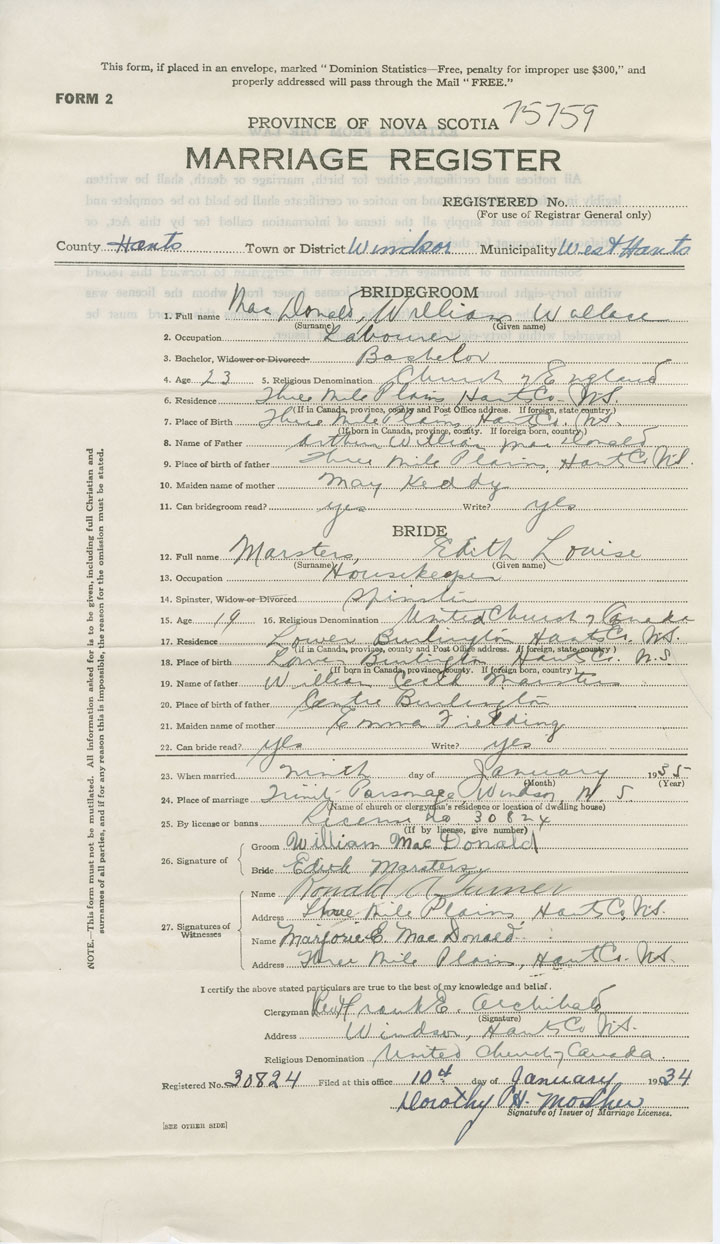 This form, if placed in an envelope, marked "Dominion Statistics—Free, penalty for improper use $300," and
properly addressed will pass through the Mail "FREE."
FORM 2
PROVINCE OF NOVA SCOTIA 75759
MARRIAGE REGISTER
REGISTERED No.
(For use of Registrar General only)
County Hants Town or District Windsor Municipality West Hants
BRIDEGROOM
1. Full name MacDonald, William Wallace
(Surname) (Given name)
2. Occupation Labourer
3. Bachelor, Widower or Divorced Bachelor
4. Age 23 5. Religious Denomination Church of England
6. Residence Three Mile Plains Hants Co. N.S.
(If in Canada, province, county and Post Office address. If foreign, state, country.)
7. Place of Birth Three Mile Plains Hants Co. N.S.
(If born in Canada, province, county. If foreign born, country.)
8. Name of Father Arthur William MacDonald
9. Place of birth of father Three Mile Plains, Hants Co N.S.
10. Maiden name of mother May Keddy
11. Can bridegroom read? yes Write? yes
BRIDE
12. Full name Marsters, Edith Louise
(Surname) (Given name)
13. Occupation Housekeeper
14. Spinster, Widow or Divorced Spinster
15. Age 19 16. Religious Denomination United Church of Canada
17. Residence Lower Burlington Hants Co. N.S.
(If in Canada, province, county and Post Office address. If foreign, state, country)
18. Place of birth Lower Burlington Hants Co. N.S.
(If born in Canada, province, county. If foreign born, country)
19. Name of father William Cecil Marsters
20. Place of birth of father Centre Burlington
21. Maiden name of mother Emma Fielding
22. Can bride read? yes Write? yes
23. When married ninth day of January 1935
(Month) (Year)
24. Place of marriage Trinity Parsonage, Windsor N.S.
(Name of church or clergyman's residence or location of dwelling house)
25. By license or banns License No 30824
(If by license, give number)
26. Signature of
Groom William MacDonald
Bride Edith Marsters
27. Signatures of Witnesses
Name Ronald A Turner
Address Three Mile Plains, Hants Co, N.S.
Name Marjorie E. MacDonald
Address Three Mile Plains, Hants Co. N.S.
I certify the above stated particulars are true to the best of my knowledge and belief.
Clergyman Rev Frank E. Archibald
(Signature)
Address Windsor, Hants Co N.S.
Religious Denomination United Church of Canada.
Registered No. 30824 Filed at this office 10th day of January 1934
Dorothy H. Mosher
Signature of Issuer of Marriage Licenses.
[SEE OTHER SIDE]
NOTE.—This form must not be mutilated. All information asked for is to be given, including full Christian and
surnames of all parties, and if for any reason this is impossible, the reason for the omission must be stated.